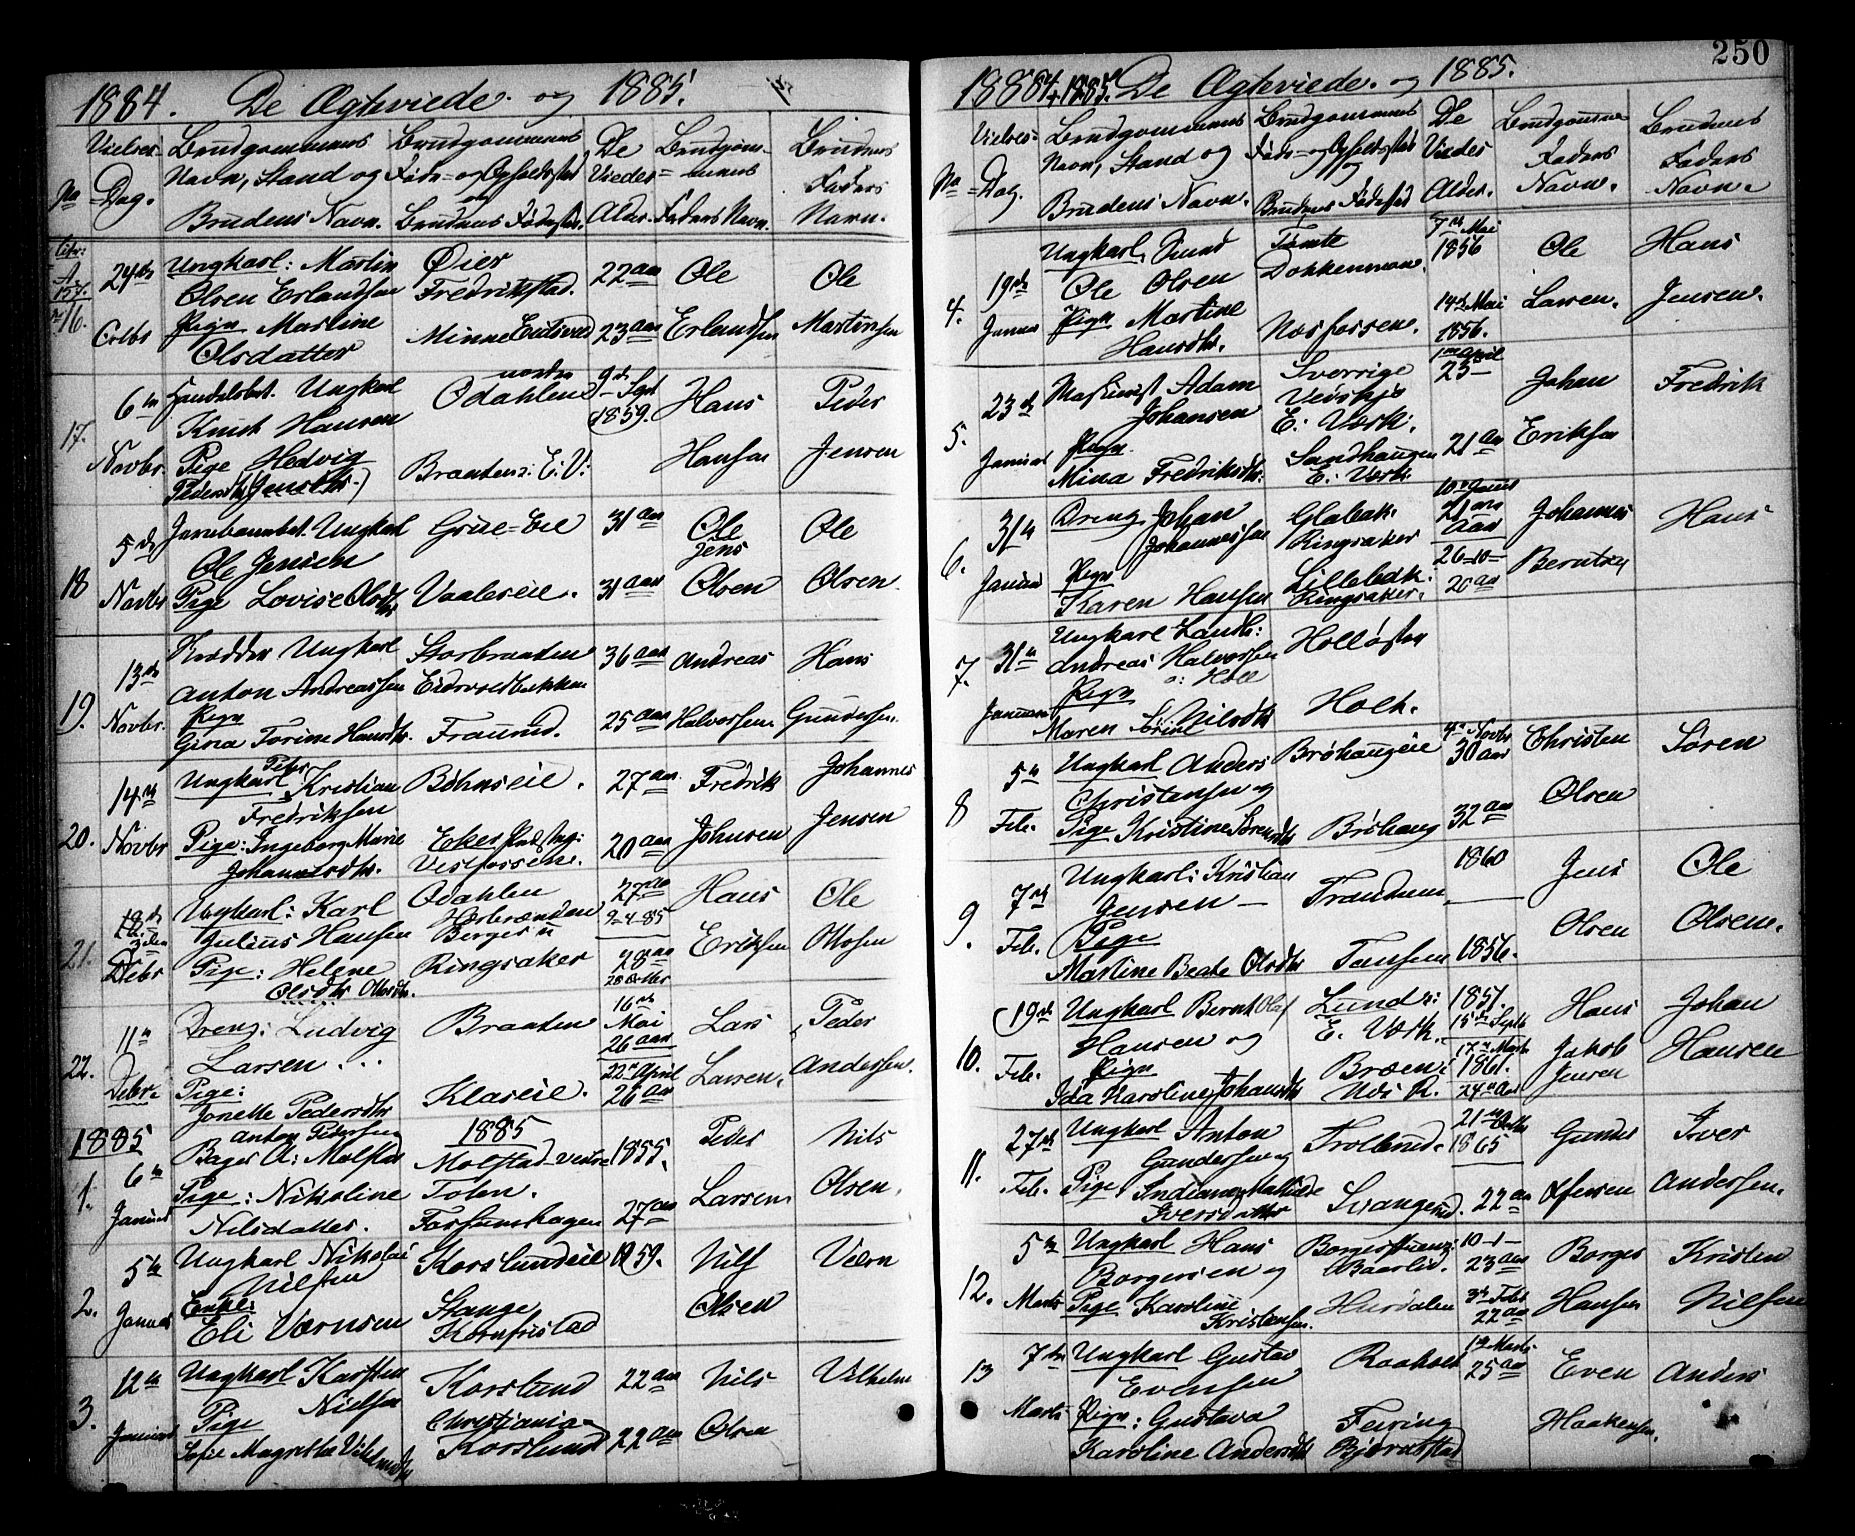 1884. De Ægteviede. og 1885.
No
Vielses-Dag.
Brudgommens Navn, Stand og Brudens Navn.
Brudgommens Føde- og Opholdssted og Brudens Fødested.
De Viedes Alder.
Brudgommens Faders Navn.
Brudens Faders Navn.
16.
24de Octbr
Ungkarl: Martin Olsen Erlandsen
Øier Fredrikstad.
22 aar
Ole Erlandsen
Ole Martinsen
Pigen Martine Olsdatter
Minne Eidsvold
23 aar
17.
6te Novbr
Handelsbet. Ungkarl Knut Hansen
nordre Odahlen
9de Sept 1859.
Hans Hansen
Peder Jensen
Pige Hedvig Pedersdtr (Jensdtr.)
Braaten: E. V:
18
5de Novbr
Jernbanebet. Ungkarl Ole Jensen
Grue-Eie
31 aar
Ole Jens Olsen
Ole Olsen.
Pige Lovise Olsdtr
Vaaleneie.
31 aar
19.
13de Novbr.
Ungkarl Anton Andreassen
Storbraaten Eidsvoldbakken
36 aar
Andreas Halvorsen.
Hans Gundersen.
Pigen Gina Torine Hansdtr.
25 aar
20.
14de Novbr
Ungkarl Peter Kristian Fredriksen
Böhnseie.
27 aar.
Fredrik Johnsen
Johannes Jensen
Pige: Ingeborg Marie Johannesdtr.
Eker Vestfossen.
20 aar
21.
Debr
Ungkarl: Karl Julius Hansen
Odahlen
27 aar
Hans Eriksen
Ole Ottosen
Pige: Helene Olsdtr Ottosdtr.
Ringsaker
28 aar
22.
11te Debr.
Dreng: Ludvig Larsen
Braaten
16de Mai 26 aar
Lars Larsen.
Peder Andersen.
Pige: Jonette Pedersdtr
Klaseie.
22de April 26 aar
1885
1885
1.
6te Januar
Anton Pedersen Bager A: Molstad
Molstad Vestre Toten.
1855.
Peder Larsen.
Nils Olsen.
Pige: Nikoline Nilsdatter.
27 aar
2.
5te Januar
Ungkarl Nikolai Nilsen
Korslundeie
1859.
Nils Olsen
Værn
Enke: Eli Værnsen
Stange
3.
12te Januar
Ungkarl Karsten Nielsen
Korslund
22 aar
Nils Olsen
Vilhelm
Pige Sofie Magrethe Vilhelmsdtr
Christiania Korslund
22 aar
250
1884 + 1885. De Ægteviede. og 1885.
No
Vielses-Dag.
Brudgommens Navn, Stand og Brudens Navn.
Brudgommens Føde- og Opholdssted og Brudens Fødested
De Viedes Alder.
Brudgommens Faders Navn.
Brudens Faders Navn.
4.
19de Januar
Ungkarl, Smed Ole Olsen
Tømte Dokkenmoen.
7de Mai 1856
Ole Larsen.
Hans Jensen.
Pigen Martine Hansdtr.
Nosfossene.
14de Mai 1856.
5.
23de Januar
Maskinist Adam Johansen
Sverrige E: Værk.
1ste April 25
Johan Eriksen
Fredrik
Pigen Mina Fredriksdtr.
Sandhaugen E: Værk.
21 aar
6.
31te Januar
Dreng Johan Johannessen
Glabak. Ringsaker
Johannes Berntsen
Hans
Pigen Karen Hansen
Lillebæk. Ringsaker.
26-10 20 aar
7.
31te Januar
Ungkarl Landh: Andreas Halvorsen o: Holl
Pigen Maren Sörine Nilsdtr
Holt.
8
5te Feb.
Ungkarl Anders Christensen og
Bröhaugeie
4de Novbr 30 aar
Christen Olsen
Sören
Pige Kristine Sörensdtr
Bröhaug
32 aar
9.
7de Feb.
Ungkarl: Kristian Jensen
Trandum
1860
Jens Olsen
Ole Olsen.
Pige Martine Beate Olsdtr
1856.
10.
19de Feb.
Ungkarl Bernt Olaf Hansen og
Lund: E. Værk.
1857. 15de Septb
Hans
Johan Hansen
Pigen Ida Karoline Johansdtr
17de Marts 1861. 24 aar
Jakob Jensen
11.
27de Feb.
Ungkarl Anton Gundersen og
1865
Gunder
Iver Andersen.
Pige Indiane Mathilde Iversdatter
22 aar
12.
5te Marts
Ungkarl Hans Borgersen og
10-1- 23 aar
Borger Hansen
Kristen Nilsen
Pige Karoline Kristensen.
Hurdalen
3de Feb 22 aar
13
7de Marts
Ungkarl Gustav Evensen
Raaholt
12 Marts 25 aar
Even Haakensen.
Anders
Pigen: Gustava Karoline Andersdtr
Feiring Bjørnstad